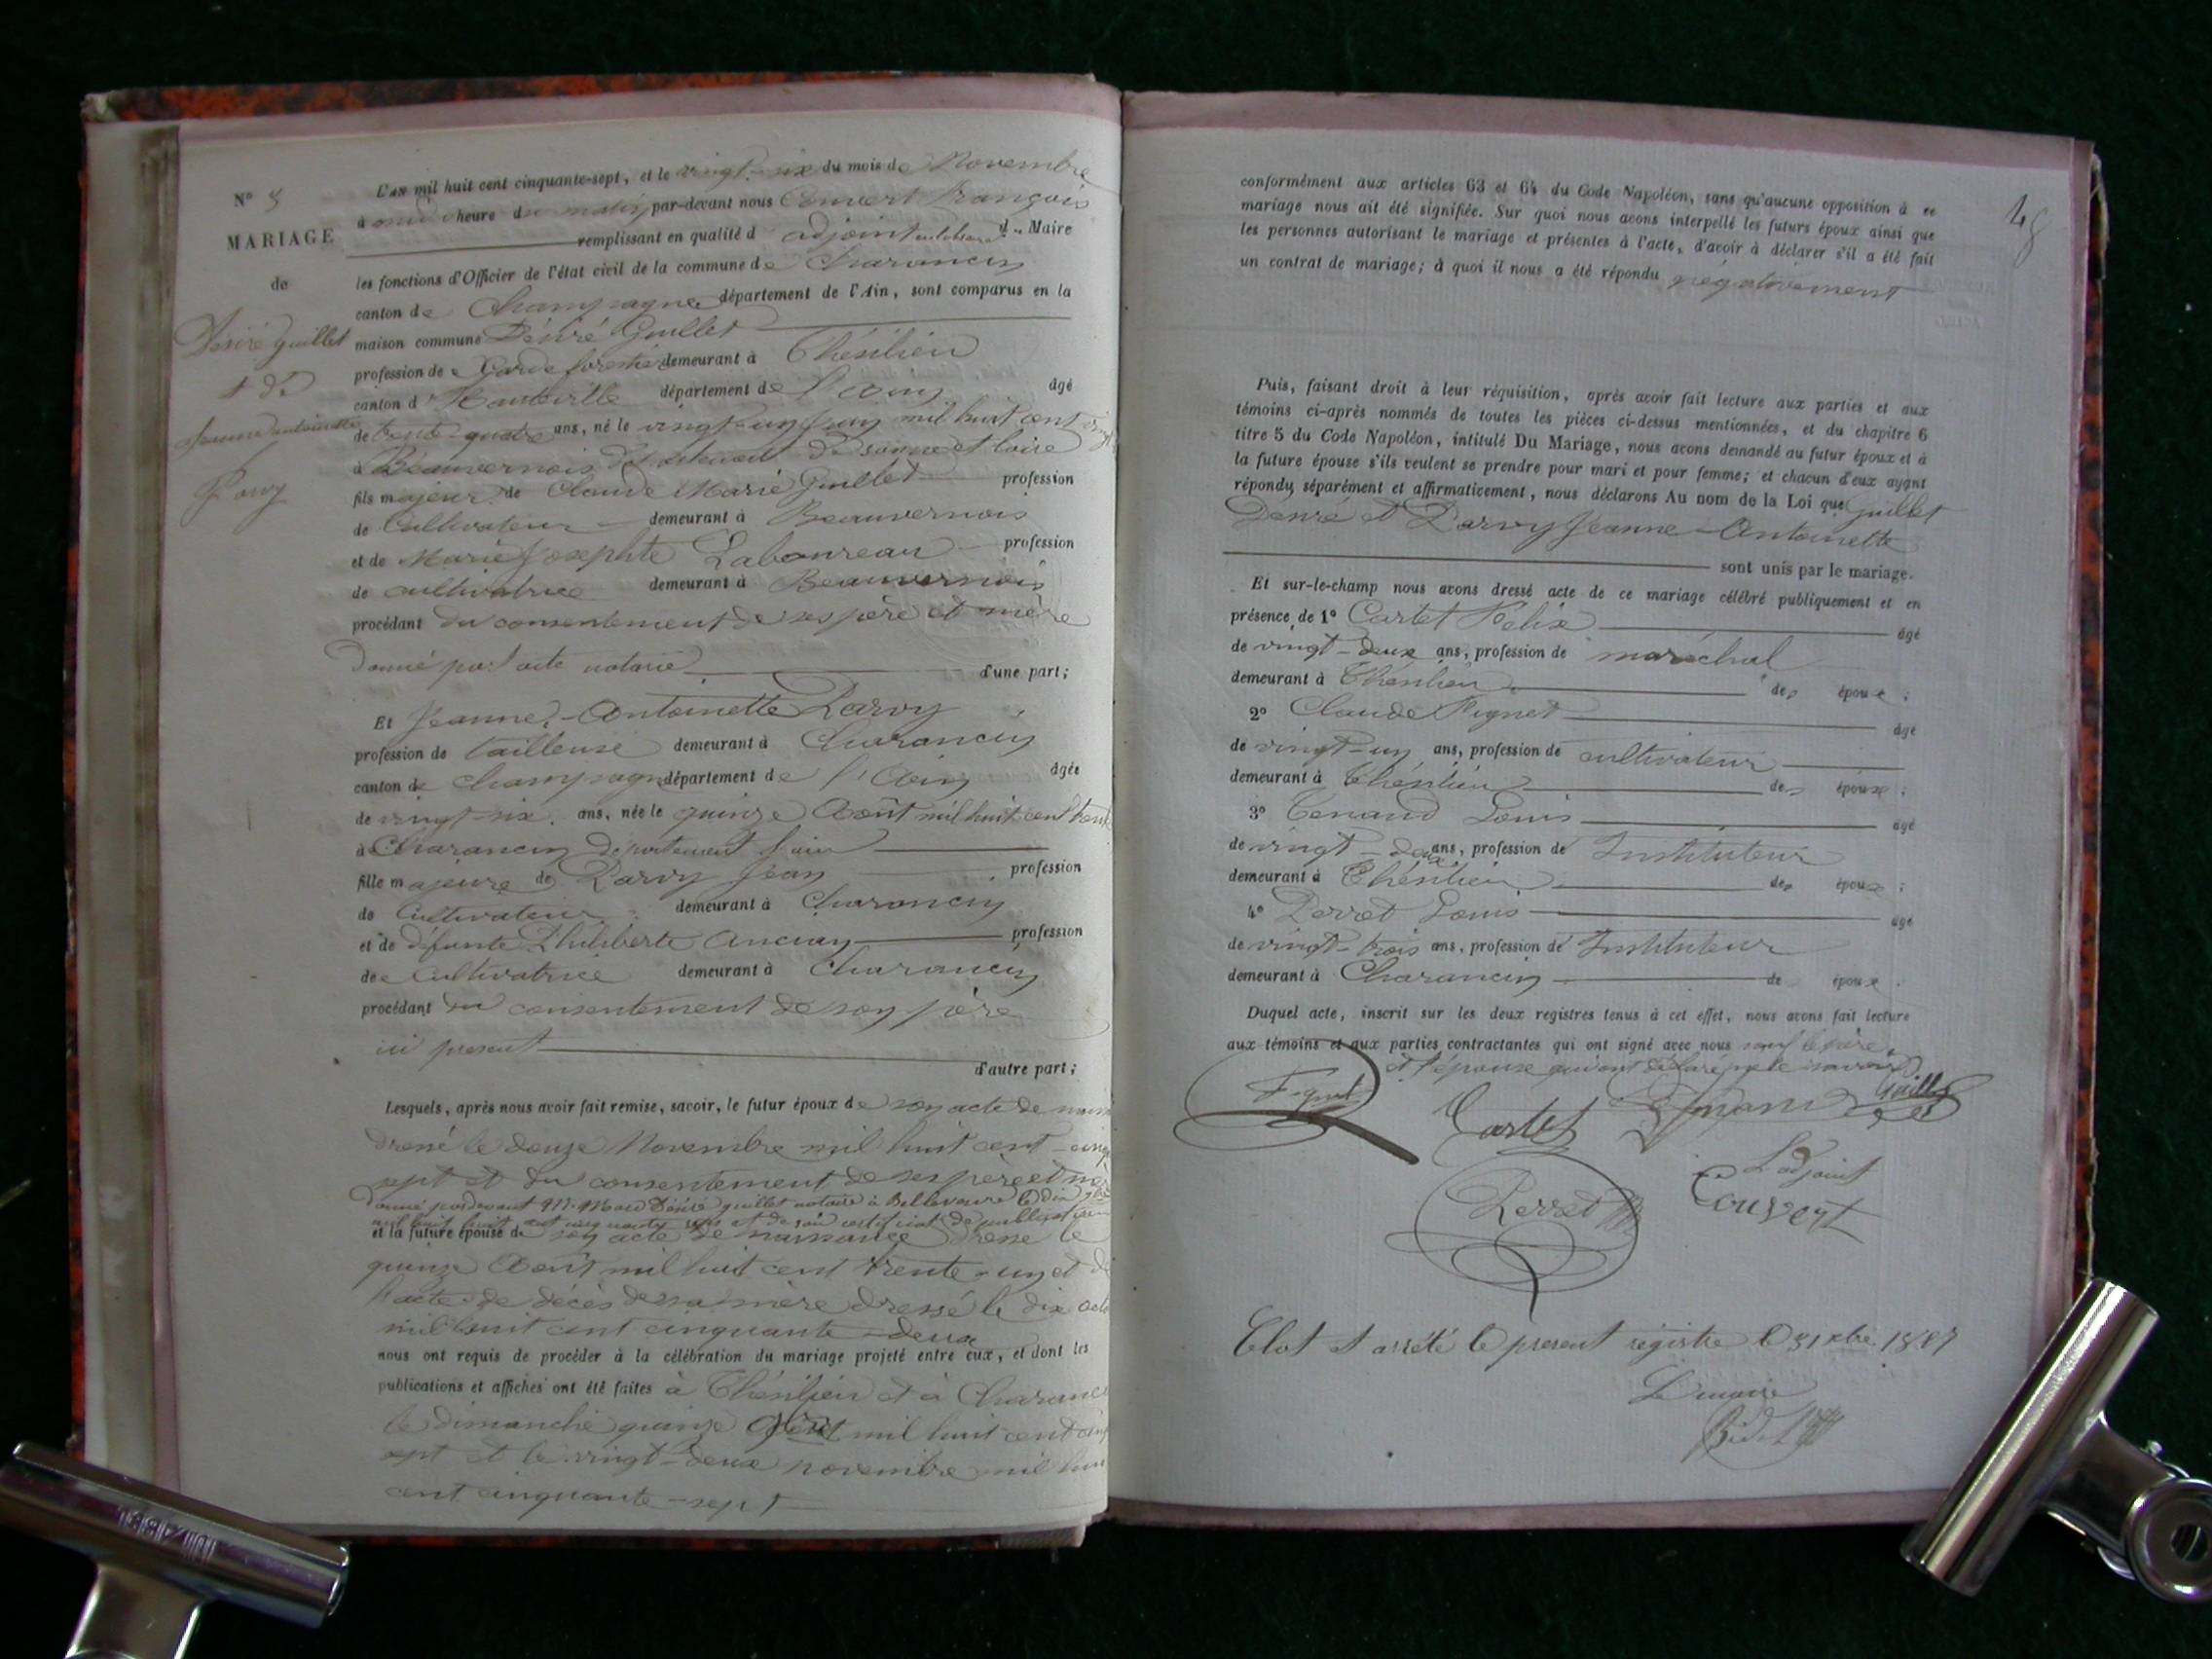 N° 8
MARIAGE
de
Désiré Guillet
et de
Jeanne antoinette
Parvy
L'an mil huit cent cinquante-sept, et le vingt-six du mois de Novembre
à heure du matin, par-devant nous Convert François
remplissant en qualité d'adjoint Maire
les fonctions d'Officier de l'état civil de la commune de Charancin
canton de Champagne département de l'Ain, sont comparus en la
maison commune Désiré Guillet
profession de Garde forestier demeurant à Thézilieu
canton d'Hauteville département de l'ain âgé
de trente quatre ans, né le vingt-un juin mil huit cent vingt
à Beauvernois département de saone et loire
fils majeur de Claude Marie Guillet profession
de Cultivateur demeurant à Beauvernois
et de Marie Josephte Laboureau profession
de cultivatrice demeurant à Beauvernois
procédant du consentement de ses père et mère
donné par acte notarié d'une part;
Et Jeanne-Antoinette Parvy
profession de tailleuse demeurant à Charancin
canton de champagne département de l'Ain âgée
de vingt-six ans, née le quinze Août mil huit cent trente
à Charancin département l'ain
fille majeure de Parvy Jean profession
de Cultivateur demeurant à Charancin
et de défunte Philiberte Ancian profession
de Cultivatrice demeurant à Charancin
procédant du consentement de son père
ici présent
d'autre part;
Lesquels, après nous avoir fait remise, savoir, le futur époux de son acte de
dressé le douze Novembre mil huit cent
sept et du consentement de ses père et mère
donné pardevant Désiré guillet notaire à Bellevesvre le dix
mil huit cent cinquante sept et de son certificat de publication
et la future épouse de son acte de naissance dressé le
quinze Août mil huit cent trente-un et de
l'acte de décès de sa mère dressé le dix
mil huit cent cinquante-deux
nous ont requis de procéder à la célébration du mariage projeté entre eux, et dont les
publications et affiches ont été faites à Thézilieu et à Charancin
le dimanche quinze mil huit cent
sept et le vingt-deux novembre mil huit
cent cinquante-sept
48
conformément aux articles 63 et 64 du Code Napoléon, sans qu'aucune opposition à ce
mariage nous ait été signifiée. Sur quoi nous avons interpellé les futurs époux ainsi que
les personnes autorisant le mariage et présentes à l'acte, d'avoir à déclarer s'il a été fait
un contrat de mariage; à quoi il nous a été répondu négativement
Puis, faisant droit à leur réquisition, après avoir fait lecture aux parties et aux
témoins ci-après nommés de toutes les pièces ci-dessus mentionnées, et du chapitre 6
titre 5 du Code Napoléon, intitulé Du Mariage, nous avons demandé au futur époux et à
la future épouse s'ils veulent se prendre pour mari et pour femme; et chacun d'eux ayant
répondu séparément et affirmativement, nous déclarons Au nom de la Loi que Guillet
Désiré et Parvy Jeanne-Antoinette
sont unis par le mariage.
Et sur-le-champ nous avons dressé acte de ce mariage célébré publiquement et en
présence de 1° Cartet Félix âgé
de vingt-deux ans, profession de maréchal
demeurant à Thézilieu de épou ;
2° Claude Fignet âgé
de vingt-un ans, profession de cultivateur
demeurant à Thézilieu de épou ;
3° Tenand Louis âgé
de vingt-deux ans, profession de Instituteur
demeurant à Thézilieu de épou ;
4° Perret Louis âgé
de vingt-trois ans, profession de Instituteur
demeurant à Charancin de épou .
Duquel acte, inscrit sur les deux registres tenus à cet effet, nous avons fait lecture
aux témoins et aux parties contractantes qui ont signé avec nous sauf le père
et l'épouse qui ont déclaré ne le savoir.
Fignet
Cartet
Guillet
Perret
L'adjoint
Convert
Clot et arrêté le présent registre le 31 xbre 1857
Le maire